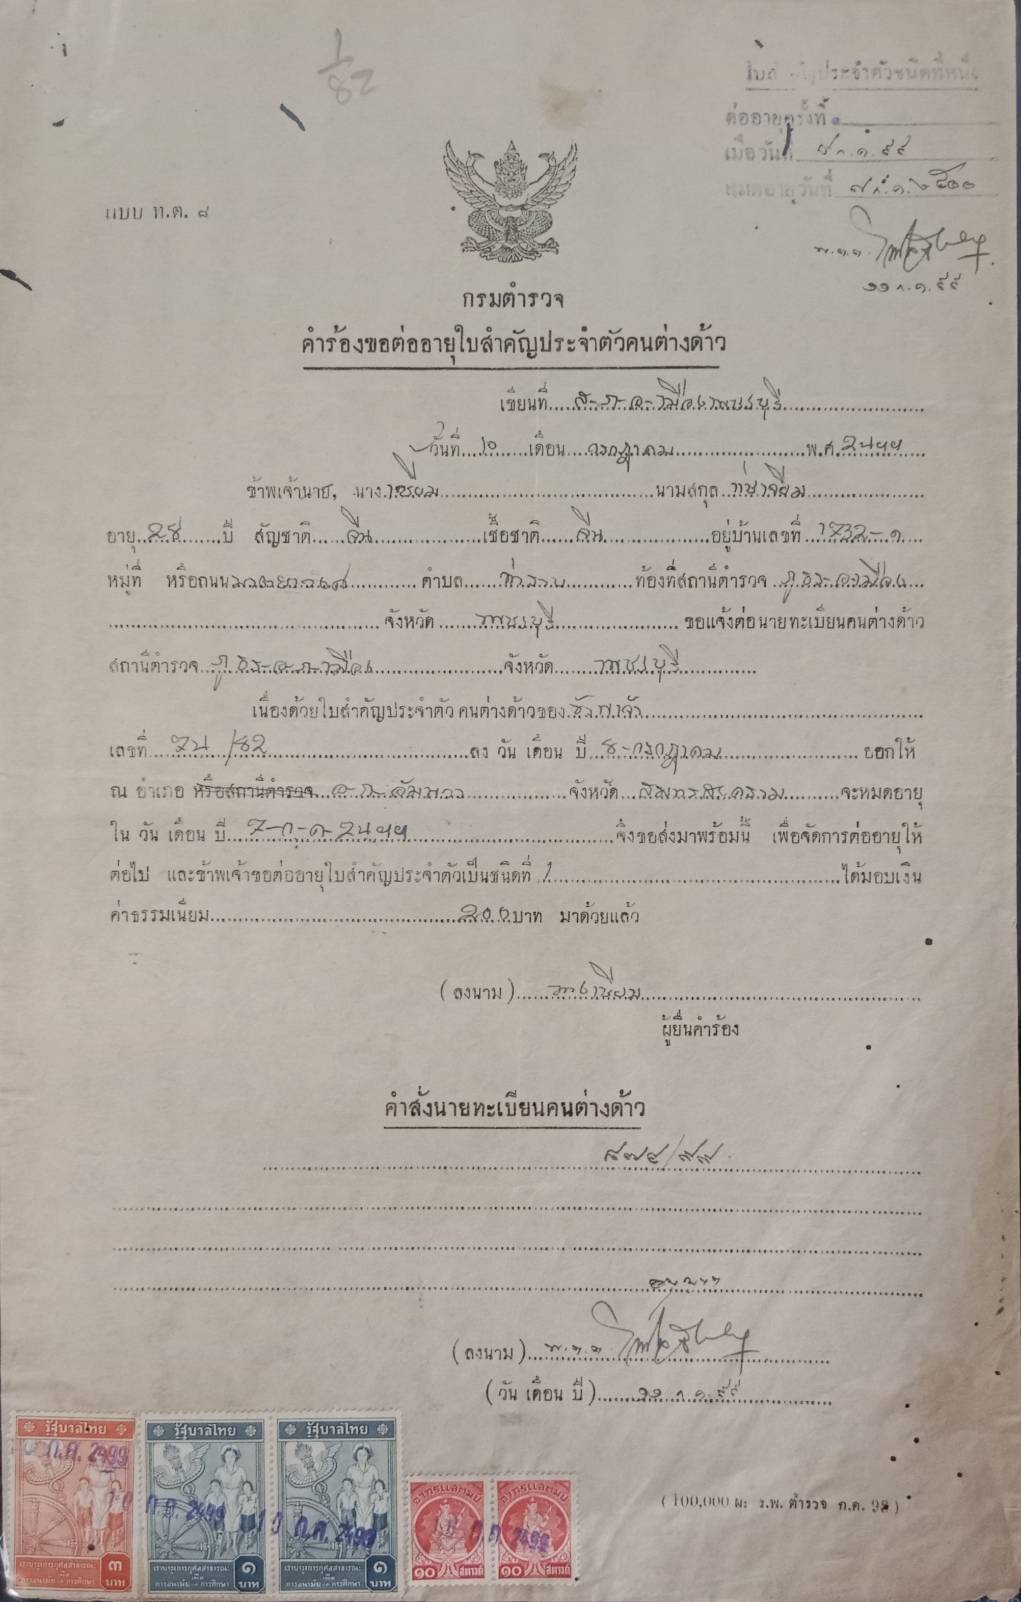 1/82
ใบสำคัญประจำตัวชนิดที่หนึ่ง
ต่ออายุครั้งที่ ๑
เมื่อวันที่ ก.ค. ๙๙
หมดอายุวันที่ ๗ ก.ค. ๒๕๐๐
แบบ ท.ต. ๘
๑๑ ก.ค. ๙๙
กรมตำรวจ
คำร้องขอต่ออายุใบสำคัญประจำตัวคนต่างด้าว
เขียนที่ ส.ภ.อ. เมืองเพชรบุรี
วันที่ 10 เดือน กรกฎาคม พ.ศ. 2499
ข้าพเจ้านาย, นาง เนียม นามสกุล
อายุ ปี สัญชาติ จีน เชื้อชาติ จีน อยู่บ้านเลขที่ 1732-๑
หมู่ที่ หรือถนน ตำบล ท่าราบ ท้องที่สถานีตำรวจ ภูธร อ.เมือง
จังหวัด เพชรบุรี ขอแจ้งต่อนายทะเบียนคนต่างด้าว
สถานีตำรวจ ภูธร อ. เมือง จังหวัด เพชรบุรี
เนื่องด้วยใบสำคัญประจำตัว คนต่างด้าวของ ข้าพเจ้า
เลขที่ /82 ลง วัน เดือน ปี 8 กรกฎาคม ออกให้
ณ อำเภอ หรือสถานีตำรวจ อัมพวา จังหวัด สมุทรสงคราม จะหมดอายุ
ใน วัน เดือน ปี 7 ก.ค. 2499 จึงขอส่งมาพร้อมนี้ เพื่อจัดการต่ออายุให้
ต่อไป และข้าพเจ้าขอต่ออายุใบสำคัญประจำตัวเป็นชนิดที่ 1 ได้มอบเงิน
ค่าธรรมเนียม 200 บาท มาด้วยแล้ว
(ลงนาม) เนียม
ผู้ยื่นคำร้อง
คำสั่งนายทะเบียนคนต่างด้าว
๘๗๕/๙๙
(ลงนาม) พ.ต.ต.
(วัน เดือน ปี) ๑๑ ก.ค. ๙๙
รัฐบาลไทย รัฐบาลไทย รัฐบาลไทย
ก.ค. 2499 ก.ค. 2499 10 ก.ค. 2499 ก.ค. 2499
อากรแสตมป์ อากรแสตมป์
๓ บาท ๑ บาท ๑ บาท ๑๐ สตางค์ ๑๐ สตางค์
(100,000 ผ: ร.พ. ตำรวจ ก.ค. 98)